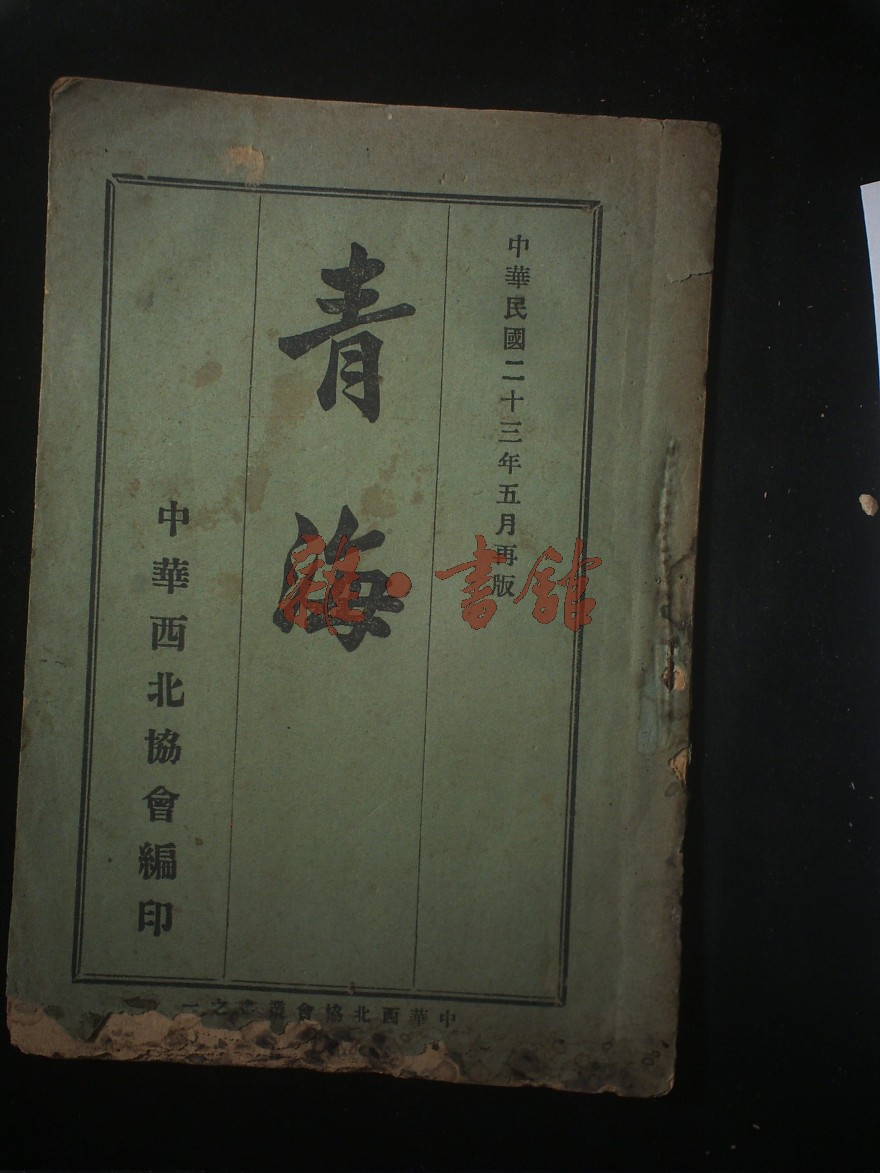 中華民國二十三年五月再版
青海
中華西北協會編印
中華西北協會叢書之一
雜·書館